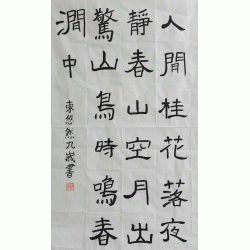 人間桂花落夜
靜春山空月出
驚山鳥時鳴春
澗中
悠然九歲書